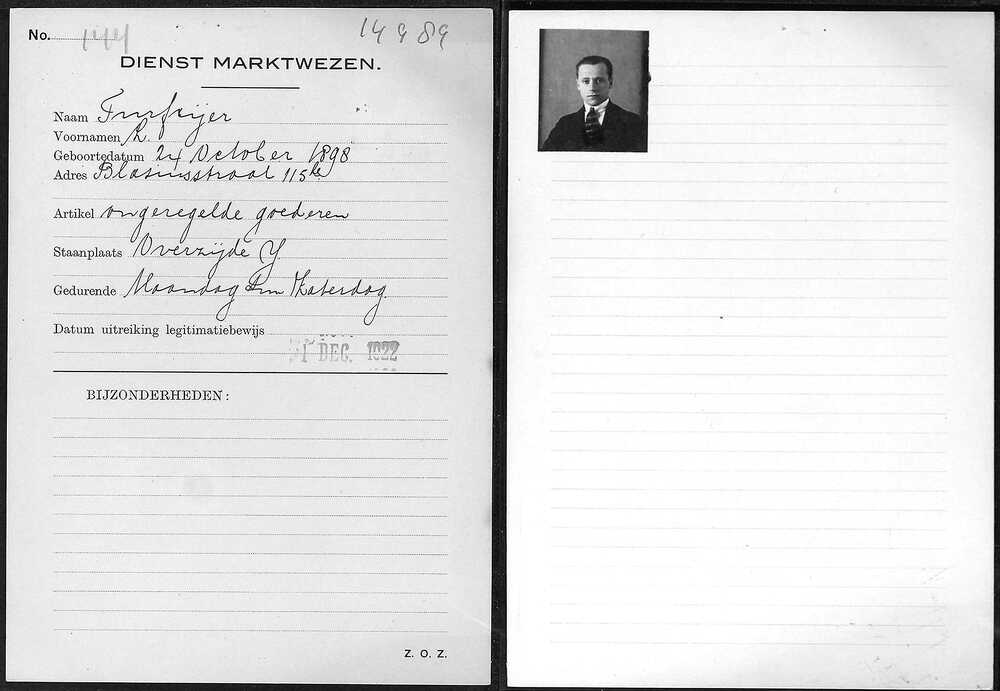 No. 144 14989
DIENST MARKTWEZEN.
Naam Turfrijer
Voornamen L.
Geboortedatum 24 October 1898
Adres Blasiusstraat 115 hs
Artikel ongeregelde goederen
Staanplaats Overzijde Y
Gedurende Maandag t/m Zaterdag.
Datum uitreiking legitimatiebewijs
DEC. 1922
BIJZONDERHEDEN:
Z. O. Z.